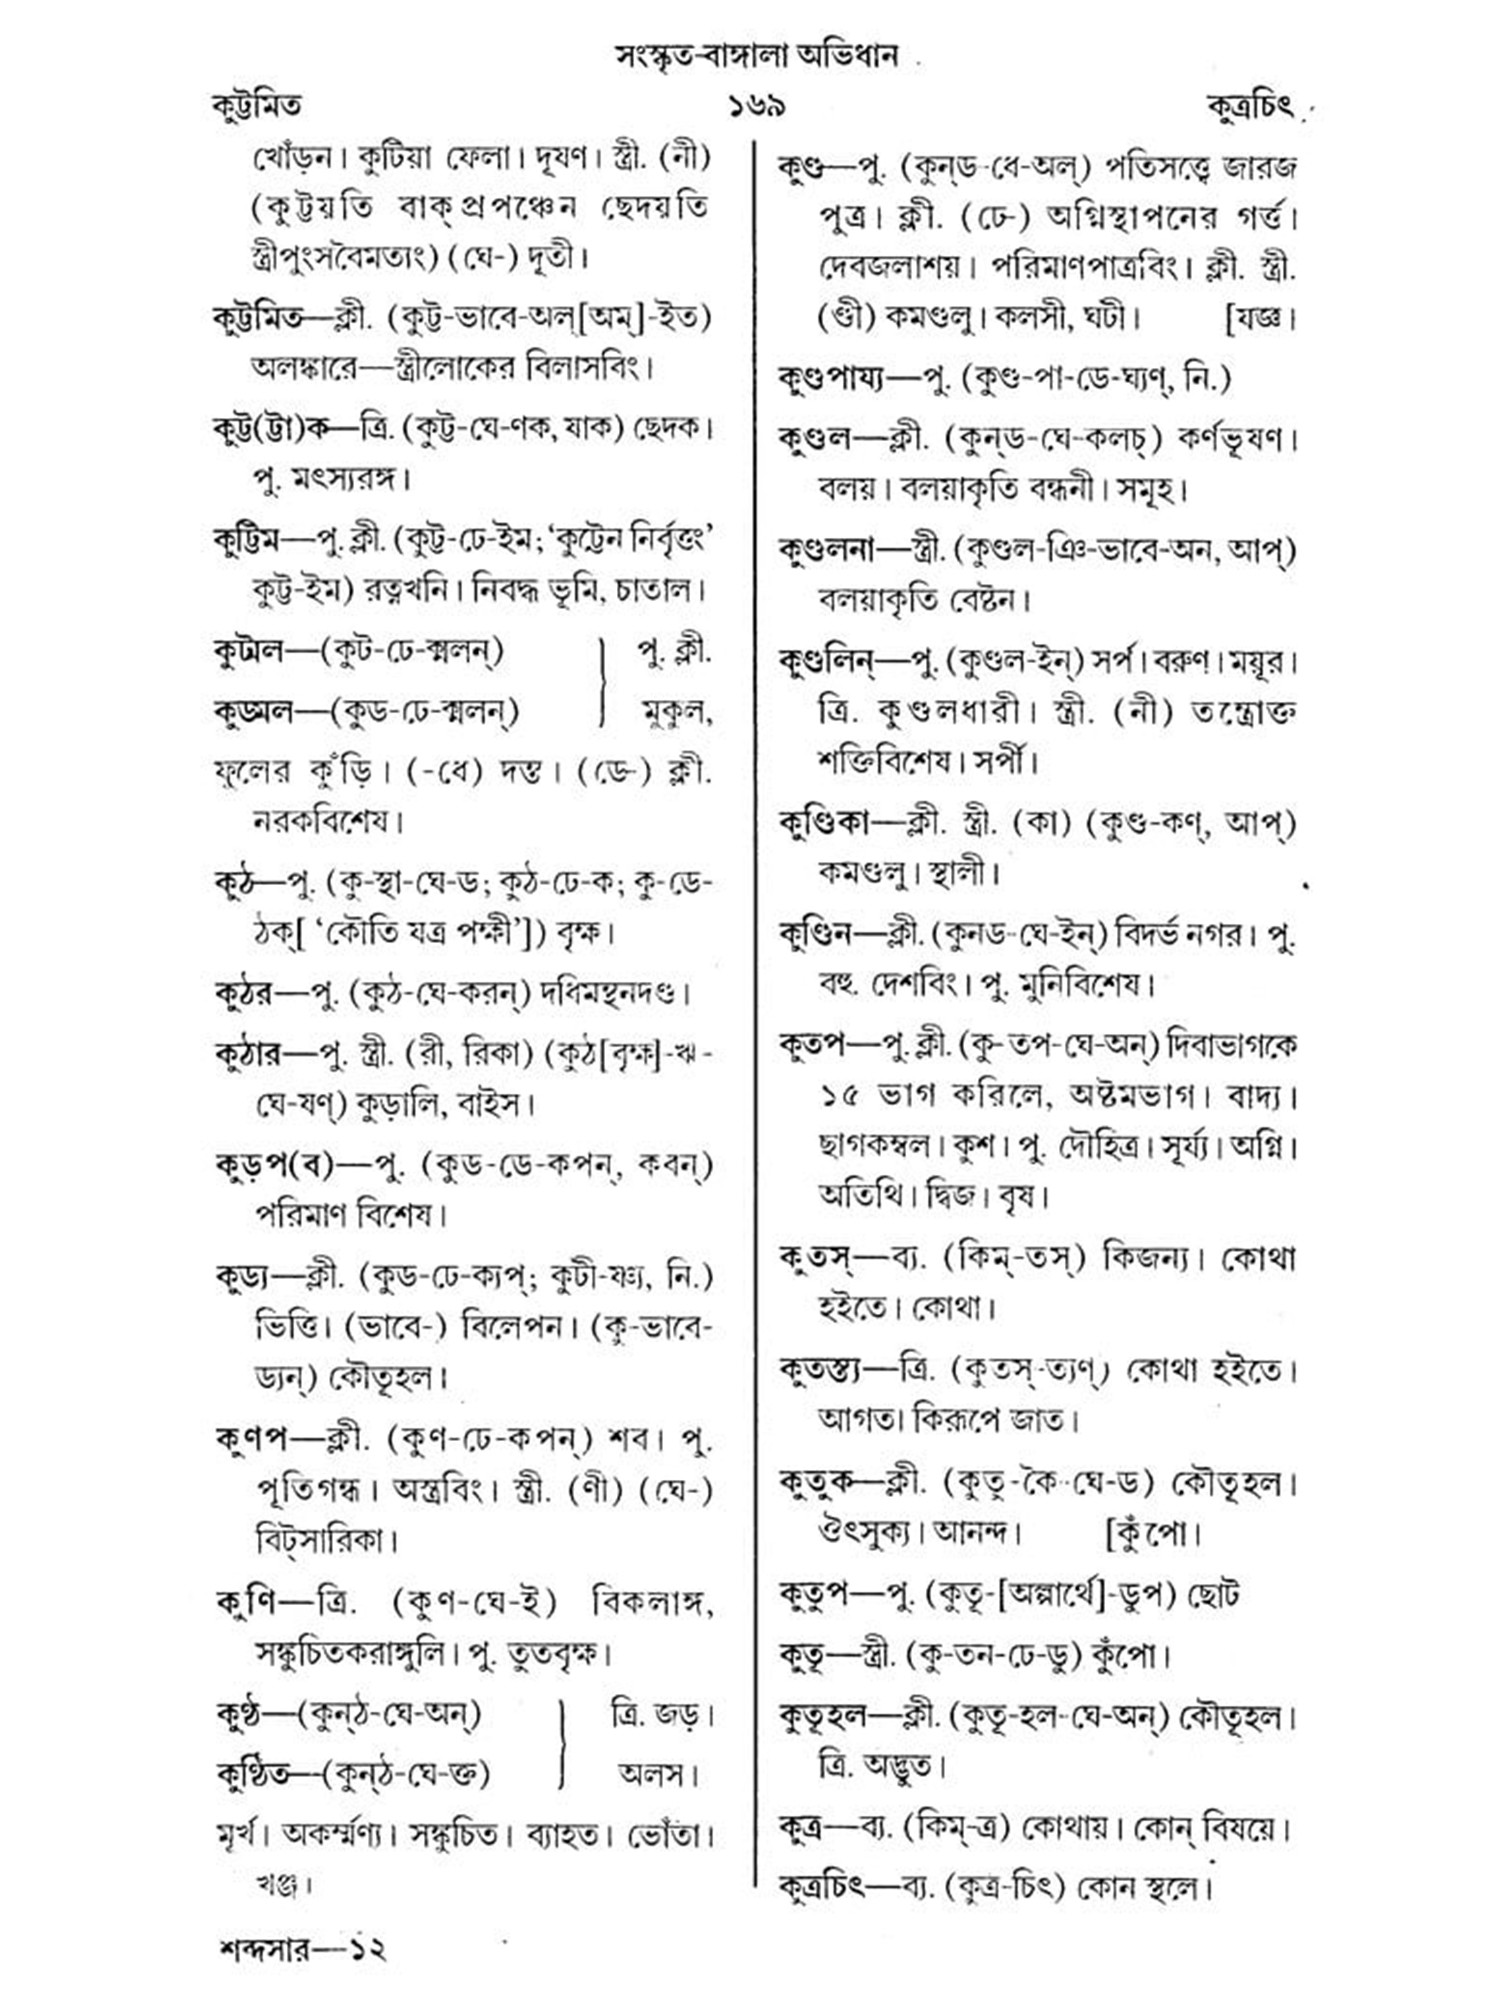 সংস্কৃত-বাঙ্গালা অভিধান
কুট্টমিত ১৬৯ কুত্রচিৎ
খোঁড়ন। কুটিয়া ফেলা। দূষণ। স্ত্রী. (নী)
(কুট্টয়তি বাক্‌প্রপঞ্চেন ছেদয়তি
স্ত্রীপুংসবৈমত্যং) (ঘে-) দূতী।
কুট্টমিত—ক্লী. (কুট্ট-ভাবে-অল্[অম্]-ইত)
অলঙ্কারে—স্ত্রীলোকের বিলাসবিং।
কুট্ট(ট্টা)ক—ত্রি. (কুট্ট-ঘে-ণক, যাক) ছেদক।
পু. মৎস্যরঙ্গ।
কুট্টিম—পু. ক্লী. (কুট্ট-ঢে-ইম; ‘কুট্টেন নির্বৃত্তং’
কুট্ট-ইম) রত্নখনি। নিবদ্ধ ভূমি, চাতাল।
কুট্মল—(কুট-ঢে-ক্মলন্) পু. ক্লী.
কুড্মল—(কুড-ঢে-ক্মলন্) মুকুল,
ফুলের কুঁড়ি। (-ধে) দন্ত। (ডে-) ক্লী.
নরকবিশেষ।
কুঠ—পু. (কু-স্থা-ঘে-ড; কুঠ-ঢে-ক; কু-ডে-
ঠক্[ ‘কৌতি যত্র পক্ষী’]) বৃক্ষ।
কুঠর—পু. (কুঠ-ঘে-করন্) দধিমন্থনদণ্ড।
কুঠার—পু. স্ত্রী. (রী, রিকা) (কুঠ[বৃক্ষ]-ঋ-
ঘে-যণ্) কুড়ালি, বাইস।
কুড়প(ব)—পু. (কুড-ডে-কপন্, কবন্)
পরিমাণ বিশেষ।
কুড্য—ক্লী. (কুড-ঢে-ক্যপ্; কুটী-ষ্ণ্য, নি.)
ভিত্তি। (ভাবে-) বিলেপন। (কু-ভাবে-
ড্যন্) কৌতূহল।
কুণপ—ক্লী. (কুণ-ঢে-কপন্) শব। পু.
পূতিগন্ধ। অস্ত্রবিং। স্ত্রী. (ণী) (ঘে-)
বিট্‌সারিকা।
কুণি—ত্রি. (কুণ-ঘে-ই) বিকলাঙ্গ,
সঙ্কুচিতকরাঙ্গুলি। পু. তুতবৃক্ষ।
কুণ্ঠ—(কুন্‌ঠ-ঘে-অন্) ত্রি. জড়।
কুণ্ঠিত—(কুন্‌ঠ-ঘে-ক্ত) অলস।
মূর্খ। অকর্ম্মণ্য। সঙ্কুচিত। ব্যাহত। ভোঁতা।
খঞ্জ।
শব্দসার—১২
কুণ্ড—পু. (কুন্‌ড-ধে-অল্) পতিসত্ত্বে জারজ
পুত্র। ক্লী. (ঢে-) অগ্নিস্থাপনের গর্ত্ত।
দেবজলাশয়। পরিমাণপাত্রবিং। ক্লী. স্ত্রী.
(ণ্ডী) কমণ্ডলু। কলসী, ঘটী। [যজ্ঞ।
কুণ্ডপায্য—পু. (কুণ্ড-পা-ডে-ঘ্যণ্, নি.)
কুণ্ডল—ক্লী. (কুন্‌ড-ঘে-কলচ্) কর্ণভূষণ।
বলয়। বলয়াকৃতি বন্ধনী। সমূহ।
কুণ্ডলনা—স্ত্রী. (কুণ্ডল-ঞি-ভাবে-অন, আপ্)
বলয়াকৃতি বেষ্টন।
কুণ্ডলিন্—পু. (কুণ্ডল-ইন্) সর্প। বরুণ। ময়ূর।
ত্রি. কুণ্ডলধারী। স্ত্রী. (নী) তন্ত্রোক্ত
শক্তিবিশেষ। সর্পী।
কুণ্ডিকা—ক্লী. স্ত্রী. (কা) (কুণ্ড-কণ্, আপ্)
কমণ্ডলু। স্থালী।
কুণ্ডিন—ক্লী. (কুনড-ঘে-ইন্) বিদর্ভ নগর। পু.
বহু. দেশবিং। পু. মুনিবিশেষ।
কুতপ—পু. ক্লী. (কু-তপ-ঘে-অন্) দিবাভাগকে
১৫ ভাগ করিলে, অষ্টমভাগ। বাদ্য।
ছাগকম্বল। কুশ। পু. দৌহিত্র। সূর্য্য। অগ্নি।
অতিথি। দ্বিজ। বৃষ।
কুতস্—ব্য. (কিম্-তস্) কিজন্য। কোথা
হইতে। কোথা।
কুতস্ত্য—ত্রি. (কুতস্-ত্যণ্) কোথা হইতে।
আগত। কিরূপে জাত।
কুতুক—ক্লী. (কুতু-কৈ-ঘে-ড) কৌতূহল।
ঔৎসুক্য। আনন্দ। [কুঁপো।
কুতুপ—পু. (কুতূ-[অল্পার্থে]-ডুপ) ছোট
কুতূ—স্ত্রী. (কু-তন-ঢে-ডু) কুঁপো।
কুতূহল—ক্লী. (কুতূ-হল-ঘে-অন্) কৌতূহল।
ত্রি. অদ্ভুত।
কুত্র—ব্য. (কিম্-ত্র) কোথায়। কোন্ বিষয়ে।
কুত্রচিৎ—ব্য. (কুত্র-চিৎ) কোন স্থলে।